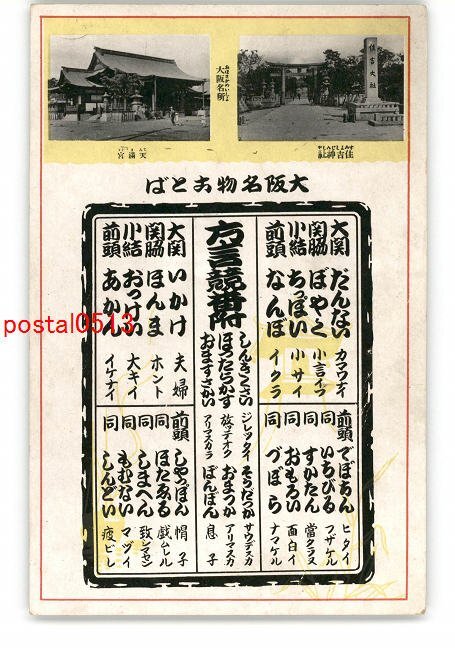 大阪名所
おほさかめいしよ
住吉神社
住吉大社
天滿宮
大阪名物おとば
方言競番附
大関 だんない カマワナイ
関脇 ぼやく 小言イフ
小結 ちっぽい 小サイ
前頭 なんぼ イクラ
前頭 でぼちん ヒタイ
同 いちびる フザケル
同 すかたん 當クラス
同 おもろい 面白イ
同 づぼら ナマケル
しんきくさい ジレッタイ
ほったらかす 放ッテオク
おますさかい アリマスカラ
そうだっか サウデスカ
おまっか アリマスカ
ぼんぼん 息子
大関 いかけ 夫婦
関脇 ほんま ホント
小結 おっけい 大キイ
前頭 あかん イケナイ
前頭 しゃっぽん 帽子
同 ほたゑる 戯ムレル
同 しまへん 致シマセン
同 もむない マヅイ
同 しんどい 疲ビレ
postal0513